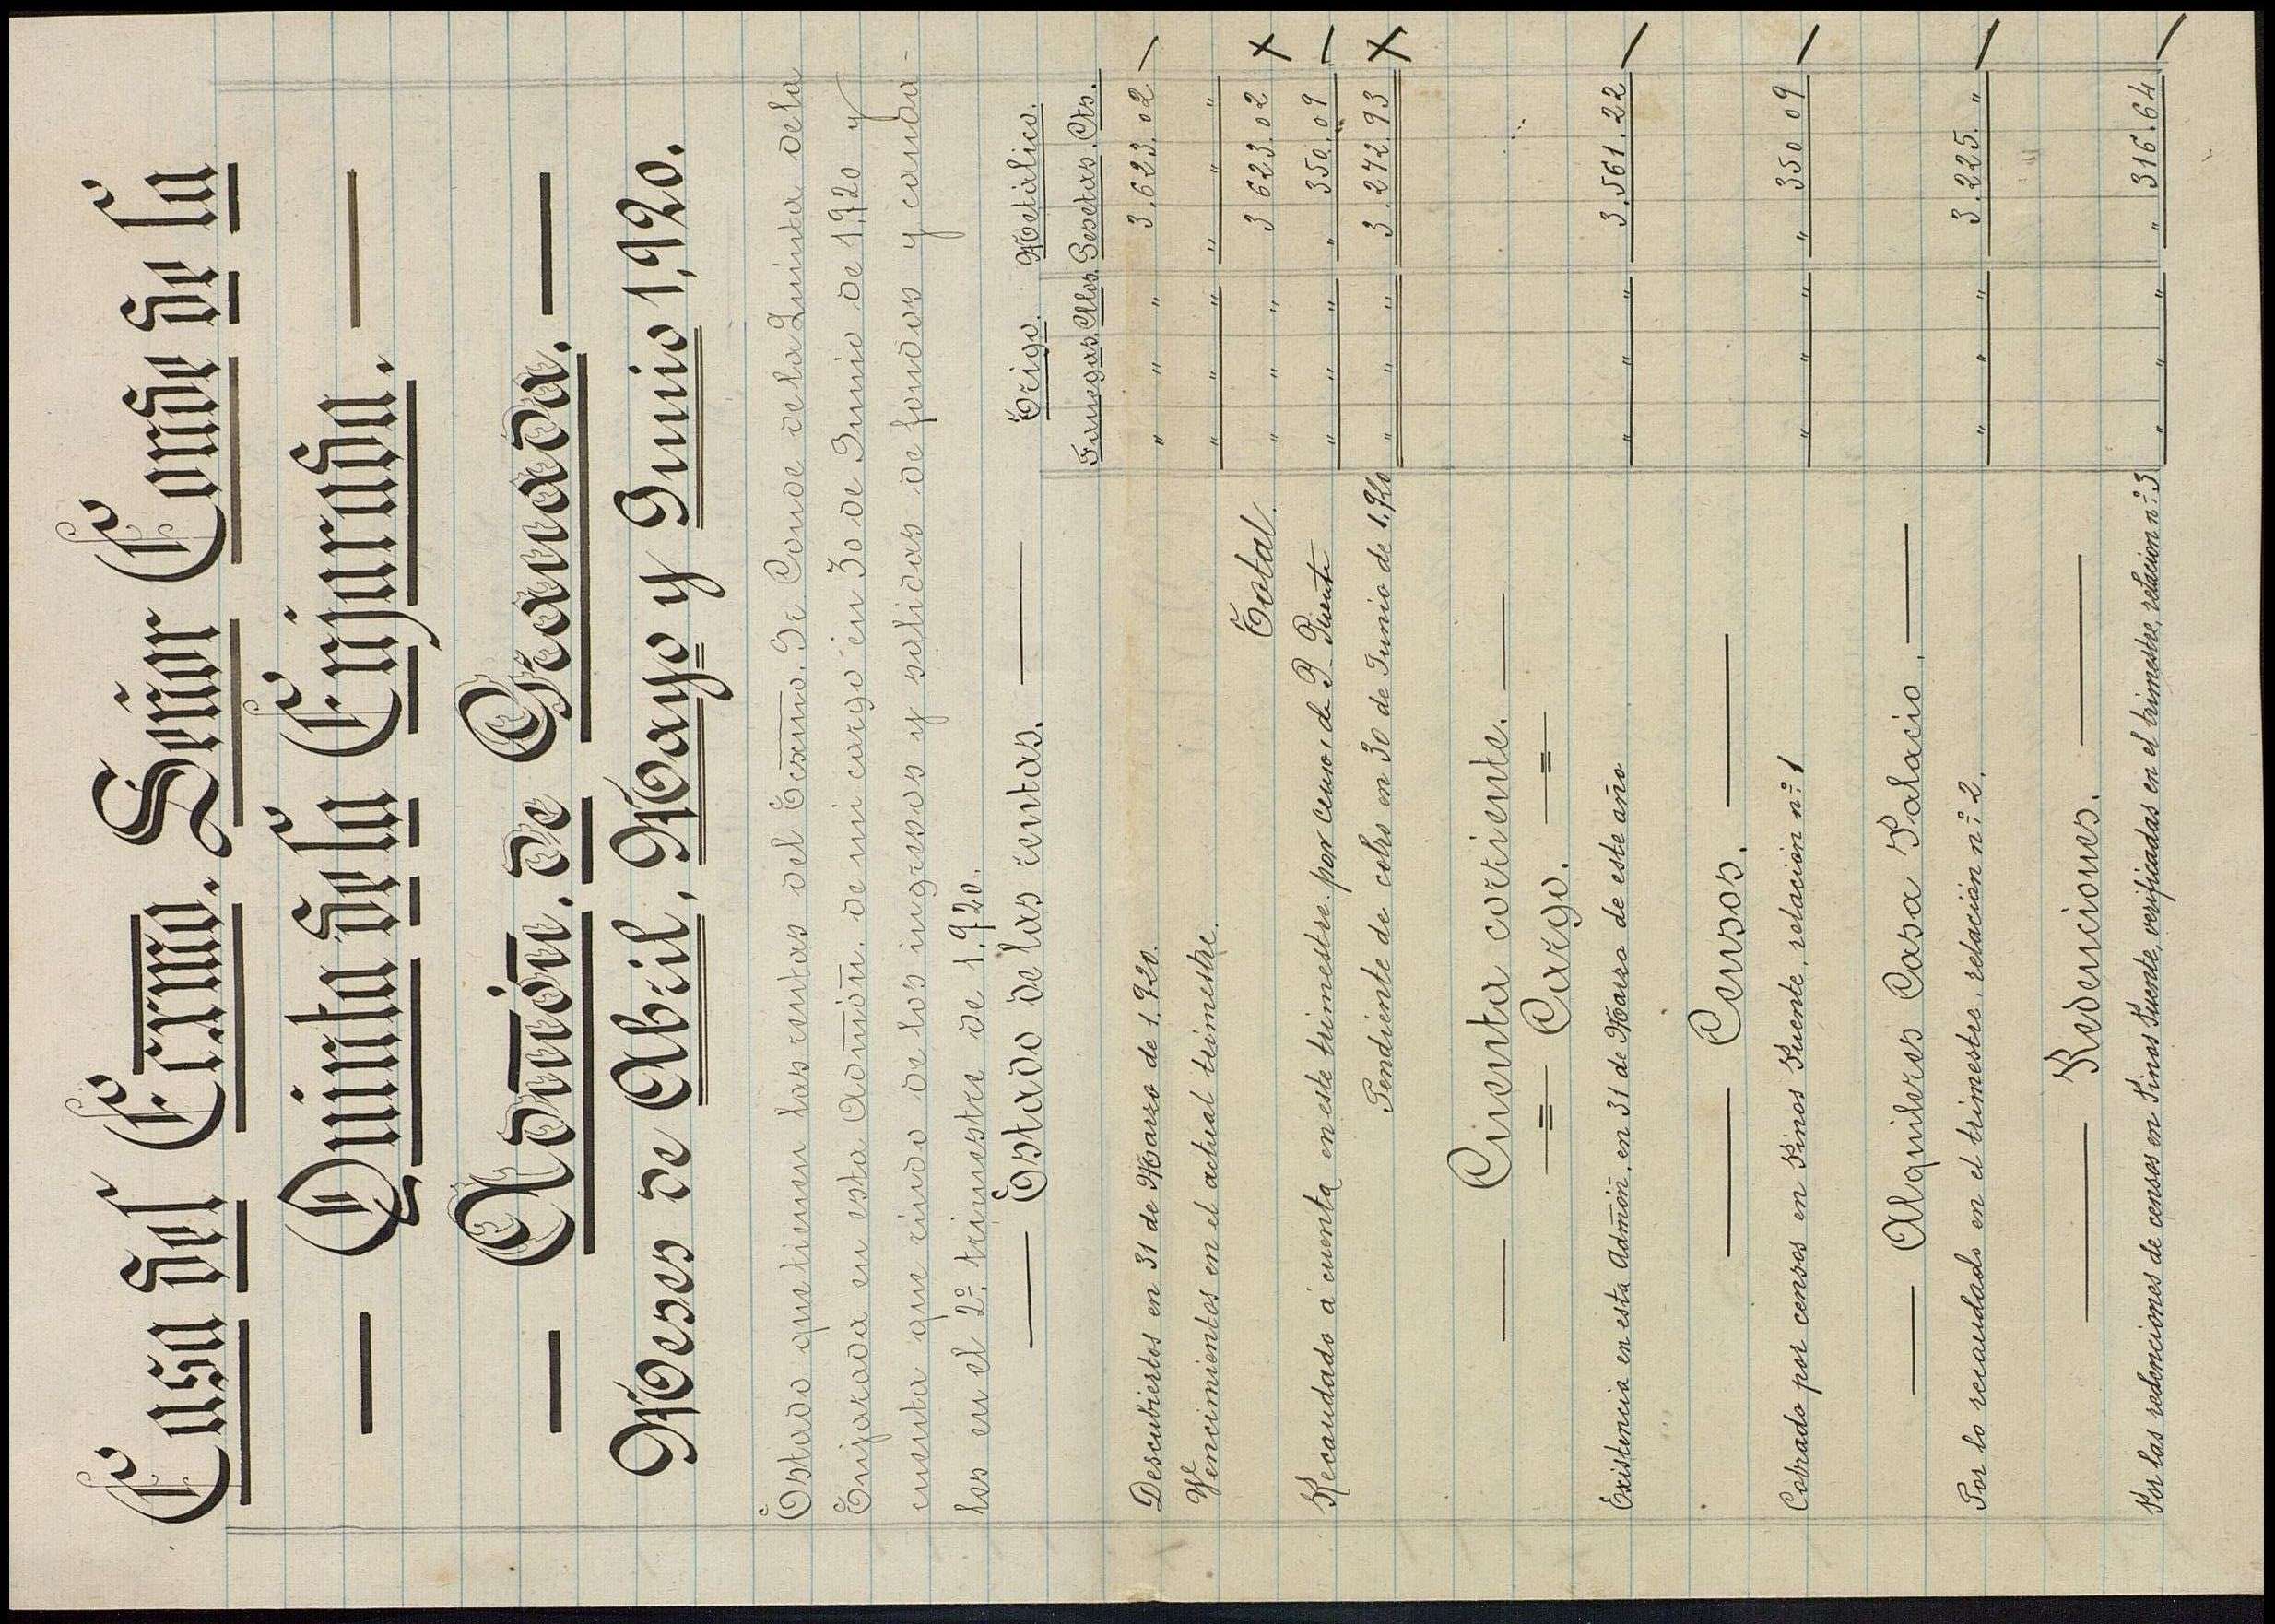 Casa del Exmo. Señor Conde de la
— Quinta de la Enjarada. —
— Admón. de Granada. —
Meses de Abril, Mayo y Junio 1,920.
Estado que tienen las rentas del Excmo. Sr. Conde de la Quinta de la
Enjarada en esta Admión. de mi cargo en 30 de Junio de 1,920 y
cuenta que rindo de los ingresos y salidas de fondos y cauda-
les en el 2º. trimestre de 1.920.
— Estado de las rentas. — Trigo. Metálico.
Fanegas. Cllos. Pesetas. Cts.
Descubiertos en 31 de Marzo de 1.920. " " " 3.623.02 —
Vencimientos en el actual trimestre. " " " " " "
Total. " " " 3 623.02 X
Recaudado á cuenta en este trimestre por censos de P. Puente " " " " 350.09 —
Pendiente de cobro en 30 de Junio de 1.920 " " " 3.272.93 X
— Cuenta corriente. —
—=— Cargo. —=—
Existencia en esta Admión. en 31 de Marzo de este año " " " 3.561.22 —
— Censos. —
Cobrado por censos en Pinos Puente, relación nº. 1 " " " " 350 09 —
— Alquileres Casa Palacio. —
Por lo recaudado en el trimestre, relación nº. 2. " " " 3.225. " —
— Redenciones. —
Por las redenciones de censos en Pinos Puente, verificadas en el trimestre, relacion nº. 3 " " " " 316.64 —